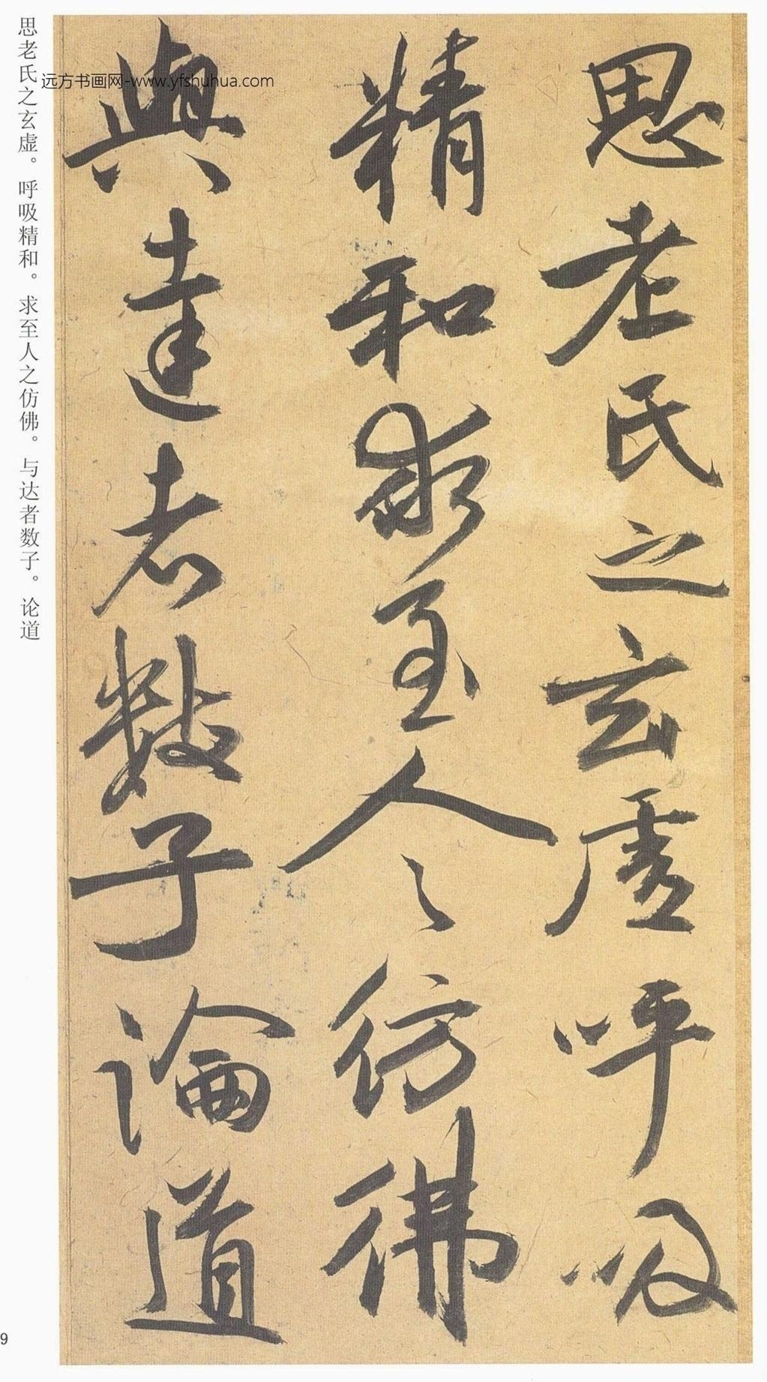 思老氏之玄虚呼吸
精和求至人之仿佛
與達者數子論道
思老氏之玄虚。呼吸精和。求至人之仿佛。与达者数子。论道
远方书画网-www.yfshuhua.com
9